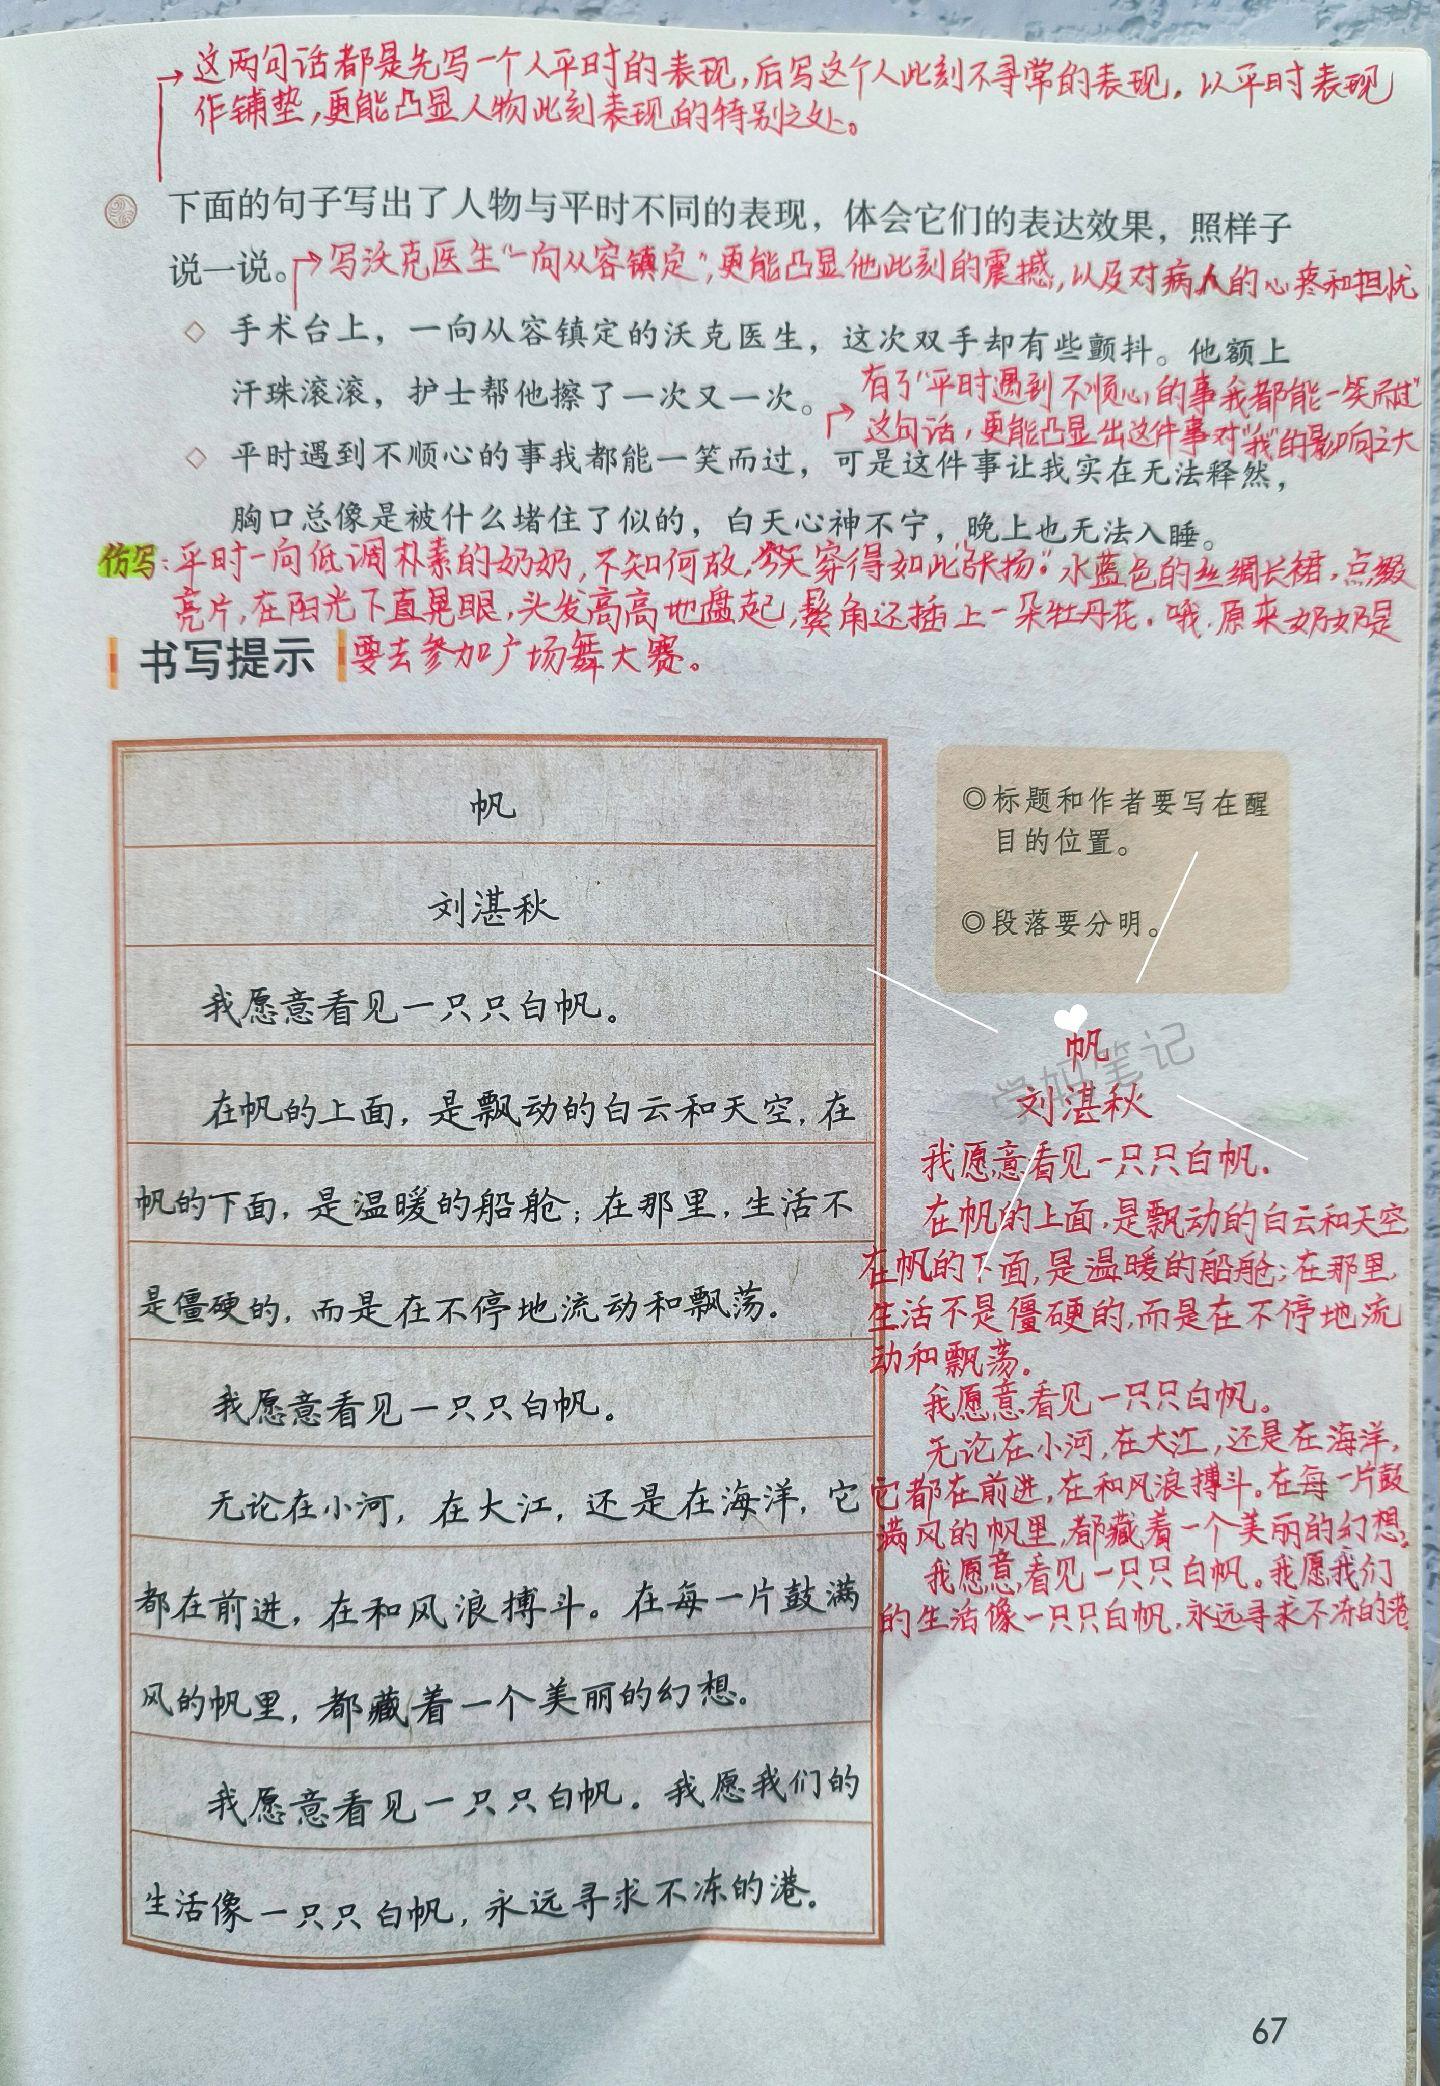 这两句话都是先写一个人平时的表现，后写这个人此刻不寻常的表现。以平时表现
作铺垫，更能凸显人物此刻表现的特别之处。
下面的句子写出了人物与平时不同的表现，体会它们的表达效果，照样子
说一说。
写沃克医生“一向从容镇定”，更能凸显他此刻的震撼，以及对病人的心疼和担忧
◇ 手术台上，一向从容镇定的沃克医生，这次双手却有些颤抖。他额上
汗珠滚滚，护士帮他擦了一次又一次。
有了“平时遇到不顺心的事我都能一笑而过”
这句话，更能凸显出这件事对“我”的影响之大
◇ 平时遇到不顺心的事我都能一笑而过，可是这件事让我实在无法释然，
胸口总像是被什么堵住了似的，白天心神不宁，晚上也无法入睡。
仿写：平时一向低调朴素的奶奶，不知何故，今天穿得如此“张扬”。水蓝色的丝绸长裙，点缀
亮片，在阳光下直晃眼，头发高高地盘起，鬓角还插上一朵牡丹花。哦，原来奶奶是
要去参加广场舞大赛。
书写提示
帆
刘湛秋
我愿意看见一只只白帆。
在帆的上面，是飘动的白云和天空，在
帆的下面，是温暖的船舱；在那里，生活不
是僵硬的，而是在不停地流动和飘荡。
我愿意看见一只只白帆。
无论在小河，在大江，还是在海洋，它
都在前进，在和风浪搏斗。在每一片鼓满
风的帆里，都藏着一个美丽的幻想。
我愿意看见一只只白帆。我愿我们的
生活像一只只白帆，永远寻求不冻的港。
◎标题和作者要写在醒
目的位置。
◎段落要分明。
学姐笔记
帆
刘湛秋
我愿意看见一只只白帆。
在帆的上面，是飘动的白云和天空，
在帆的下面，是温暖的船舱；在那里，
生活不是僵硬的，而是在不停地流
动和飘荡。
我愿意看见一只只白帆。
无论在小河，在大江，还是在海洋，
它都在前进，在和风浪搏斗。在每一片鼓
满风的帆里，都藏着一个美丽的幻想。
我愿意看见一只只白帆。我愿我们
的生活像一只只白帆，永远寻求不冻的港
67